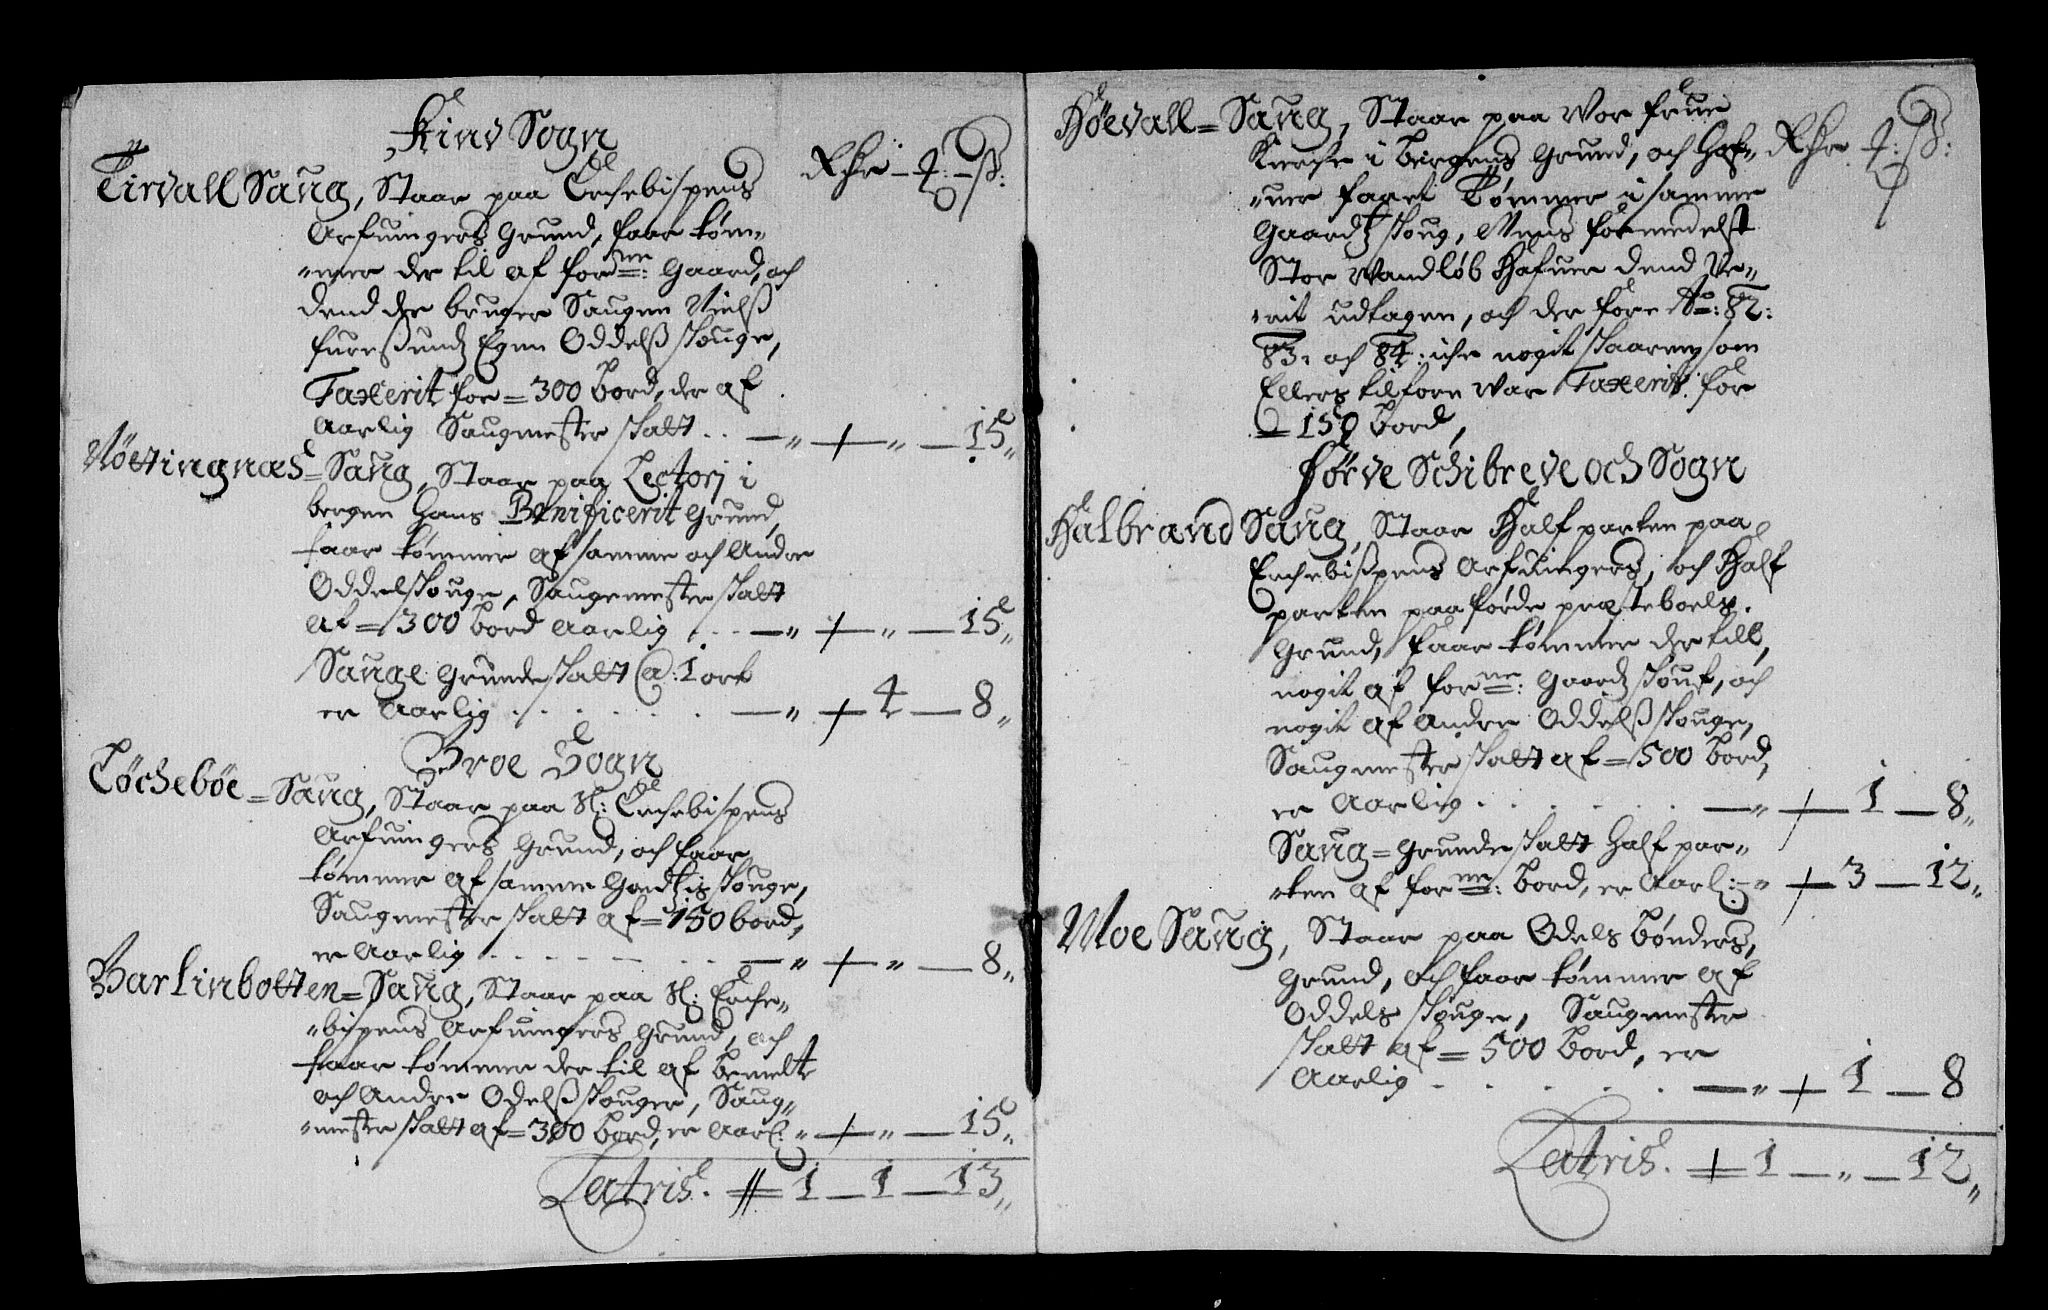 Kinn Sogn
Rhr - ꝸ: - ß:
Tirvall Saug, Staar paa Erchebispens
Arfuingers Grund, faar tøm-
mer der til af forne: Gaard, och
dend der bruger Saugen Nielß
Furesunds Egen Oddelß skouge,
Taxerit for = 300 bord, der af
Aarlig Saugmester skatt .. — „ + „ — 15 „
Nöttingnæs = Saug, Staar paa Lectorj i
bergen Hans Benificerit Grund,
faar tømmer af samme och Andre
Oddelskouge, Saugemester skatt
af = 300 bord Aarlig ... — „ + „ — 15 „
Sauge Grundeskatt @: 1 ort
er Aarlig . . . . . — „ + 4 — 8 „
Broe Sogn
Töcheböe = Saug, Staar paa Sl: Erchebispens
Arfuingers Grund, och faar
tømmer af samme Gordtzs skouge,
Saugmester skatt af = 150 bord,
er Aarlig . . . . . — „ + „ — 8 „
Barlinbotten = Saug, Staar paa Sl: Erche-
bispens Arfuingers Grund, och
faar tømmer der til af bemelte
och Andre Odelßskouger, Saug-
mester skatt af = 300 bord, er Aarl: „ + „ — 15 „
Latris. # 1 — 1 — 13 „
Höevall = Saug, Staar paa Vor frue
Kierche i bergens Grund, och Haf-
Rhr ꝸ: ß:
uer faaet Tømmer i samme
Gaardtz skoug, Mens formedelst
Stor Vandløb Hafuer dend Ve-
rit udtagen, och der fore Ao: 82:
83: och 84: iche nogit skaaren, som
Ellers tilforn var Taxerit for
= 150 bord,
Förve Schibreve och Sogn
Halbrand Saug, Staar Half parten paa
Erchebißpens Arfuingers, och Half
parten paa førde præsteboels
Grund, faar tømmer der till,
nogit af forne: Gaards skouf, och
nogit af Andre Oddelß skouge,
Saugmester skatt af = 500 bord,
er Aarlig . . . . . — „ + 1 — 8 „
Saug = Grundeskatt Half par-
ten af forne: bord, er Aarl: - „ + 3 — 12 „
Moe Saug, Staar paa Odels bønders,
Grund, och faar tømmer af
Oddels skouge, Saugmester
skatt af = 500 bord, er
Aarlig . . . . . — „ + 1 — 8
Latris. + 1 — „ — 12 „